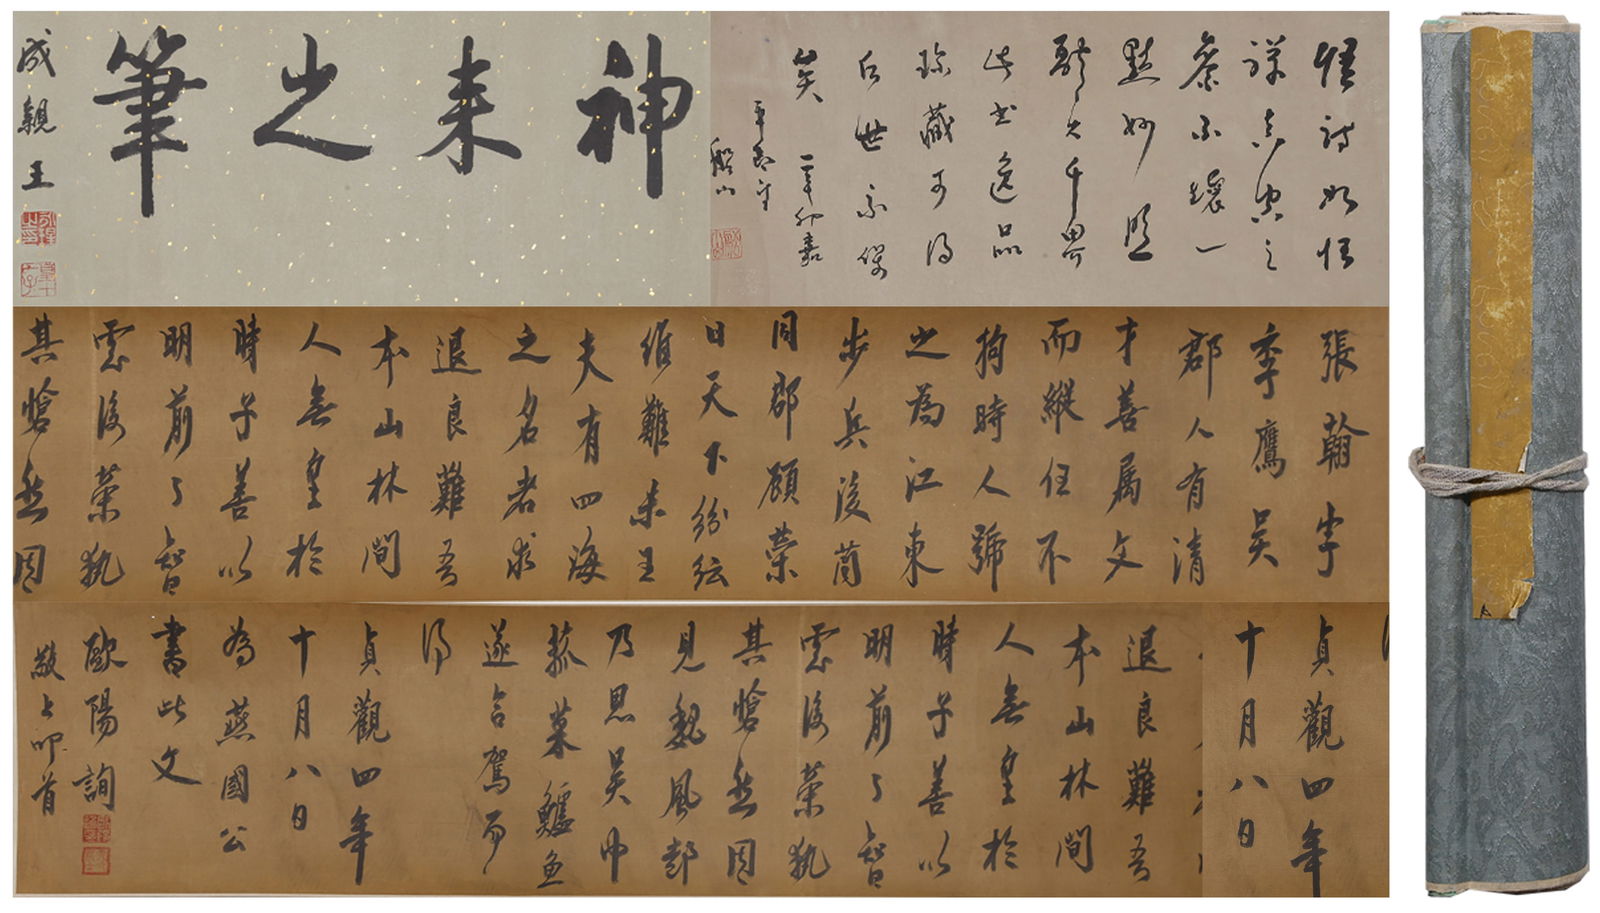 悟詩如悟
禅真空之
參不壞一
點妙明
大千界
此書逸品
珍藏可得
后世永保
神来之筆
成親王
張翰字
季鷹吳
郡人有清
才善属文
而縱任不
拘時人號
之為江東
步兵後
同郡顧榮
曰天下紛紜
難未
夫有四海
之名者求
退良難吾
本山林間
人無望於
時子善以
明前了智
慮後榮執
其愴然因
貞觀四年
十月八日
退良難吾
本山林間
人無望於
時子善以
明前了智
慮後榮執
其愴然因
見風起
乃思吳中
菰菜鱸魚
遂命駕而
貞觀四年
十月八日
為燕國公
書此文
歐陽詢
敬上叩首